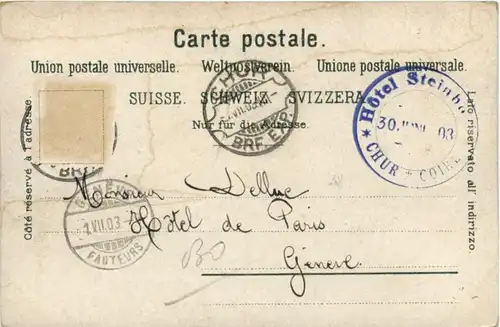 Carte postale.
Union postale universelle. Weltpostverein. Unione postale universale.
SUISSE. SCHWEIZ SVIZZERA
Nur für die Adresse.
Côté réservé à l'adresse.
Lato riservato all' indirizzo
CHUR
VII.03
BRF. EX
BRF
Hôtel Steinb
30. 03
CHUR * COIRE
GENÈVE
1.VII.03
FACTEURS
Monsieur Delluc
Hôtel de Paris
Genève